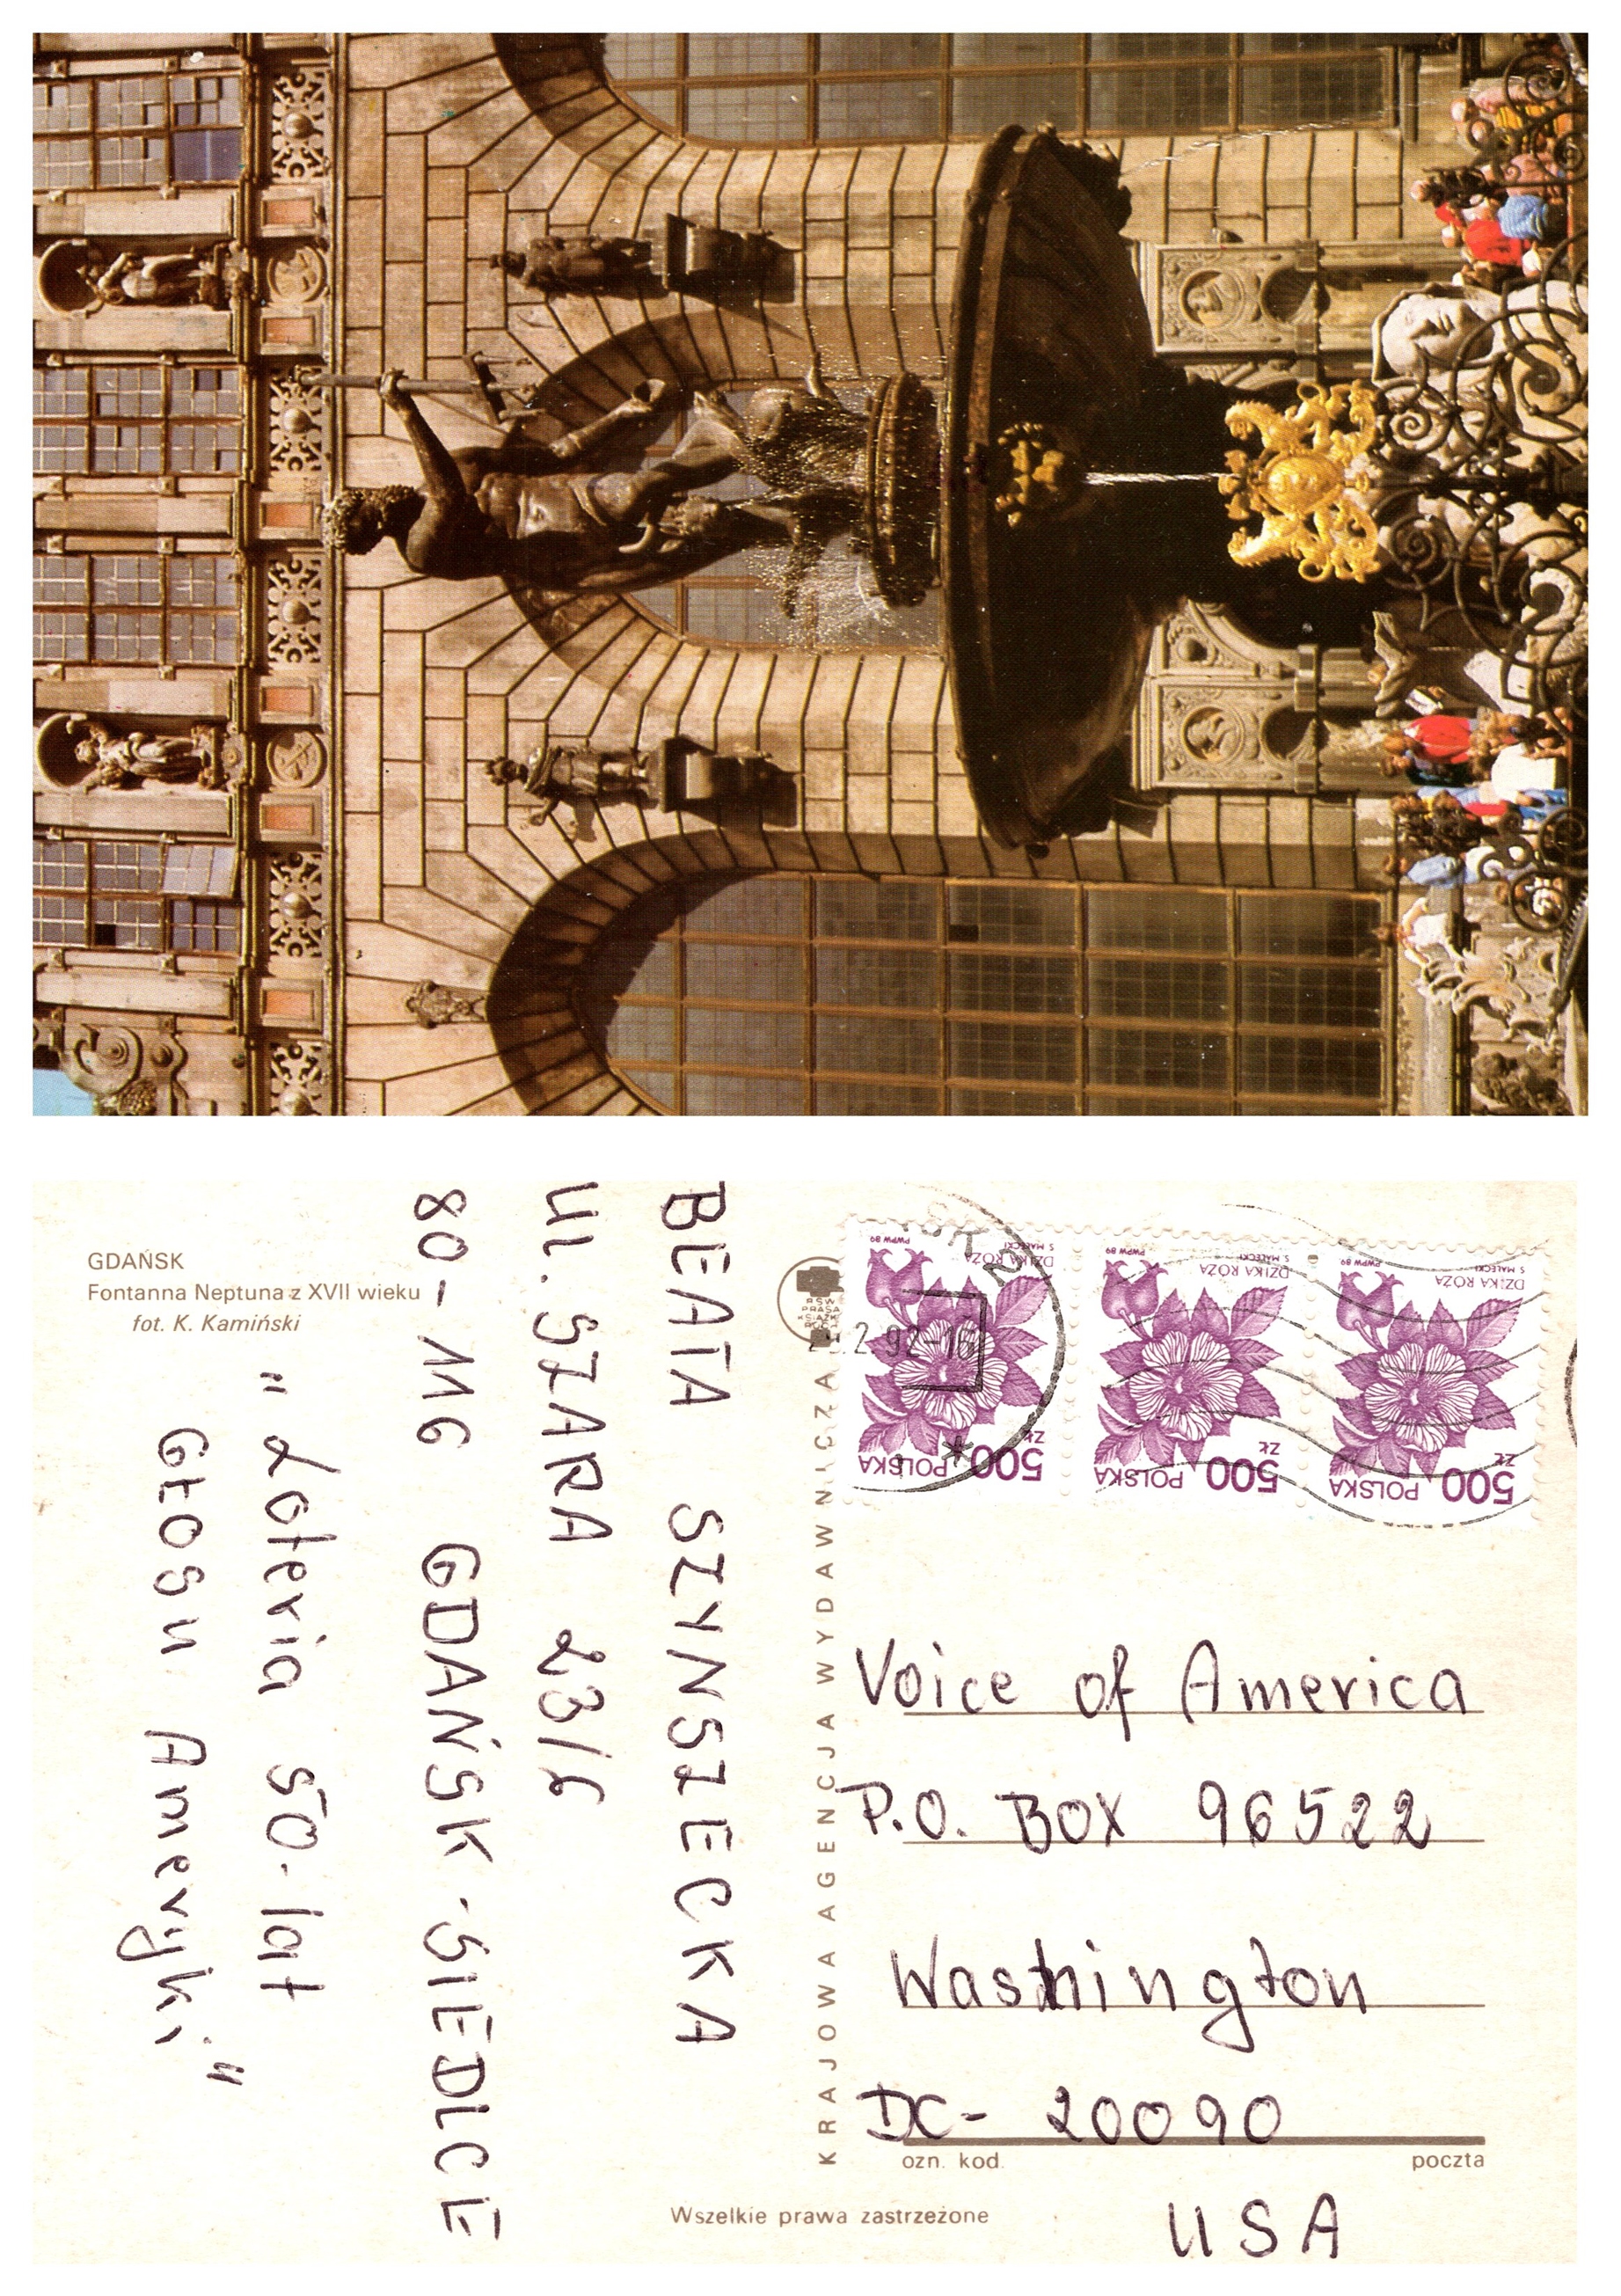 GDAŃSK
Fontanna Neptuna z XVII wieku
fot. K. Kamiński
BEATA SZYNSZECKA
Ul. SZARA 23/6
80-116 GDAŃSK-SIEDLCE
"Loteria 50-lat
Głosu Ameryki"
KRAJOWA AGENCJA WYDAWNICZA
RSW
PRASA
KSIĄŻKA
RUCH
POLSKA 500 ZŁ
DZIKA RÓŻA
S. MAŁECKI
PWPW 89
POLSKA 500 ZŁ
DZIKA RÓŻA
S. MAŁECKI
PWPW 89
POLSKA 500 ZŁ
DZIKA RÓŻA
S. MAŁECKI
PWPW 89
2.92-16
Voice of America
P.O. BOX 96522
Washington
DC- 20090
ozn. kod. poczta
USA
Wszelkie prawa zastrzeżone